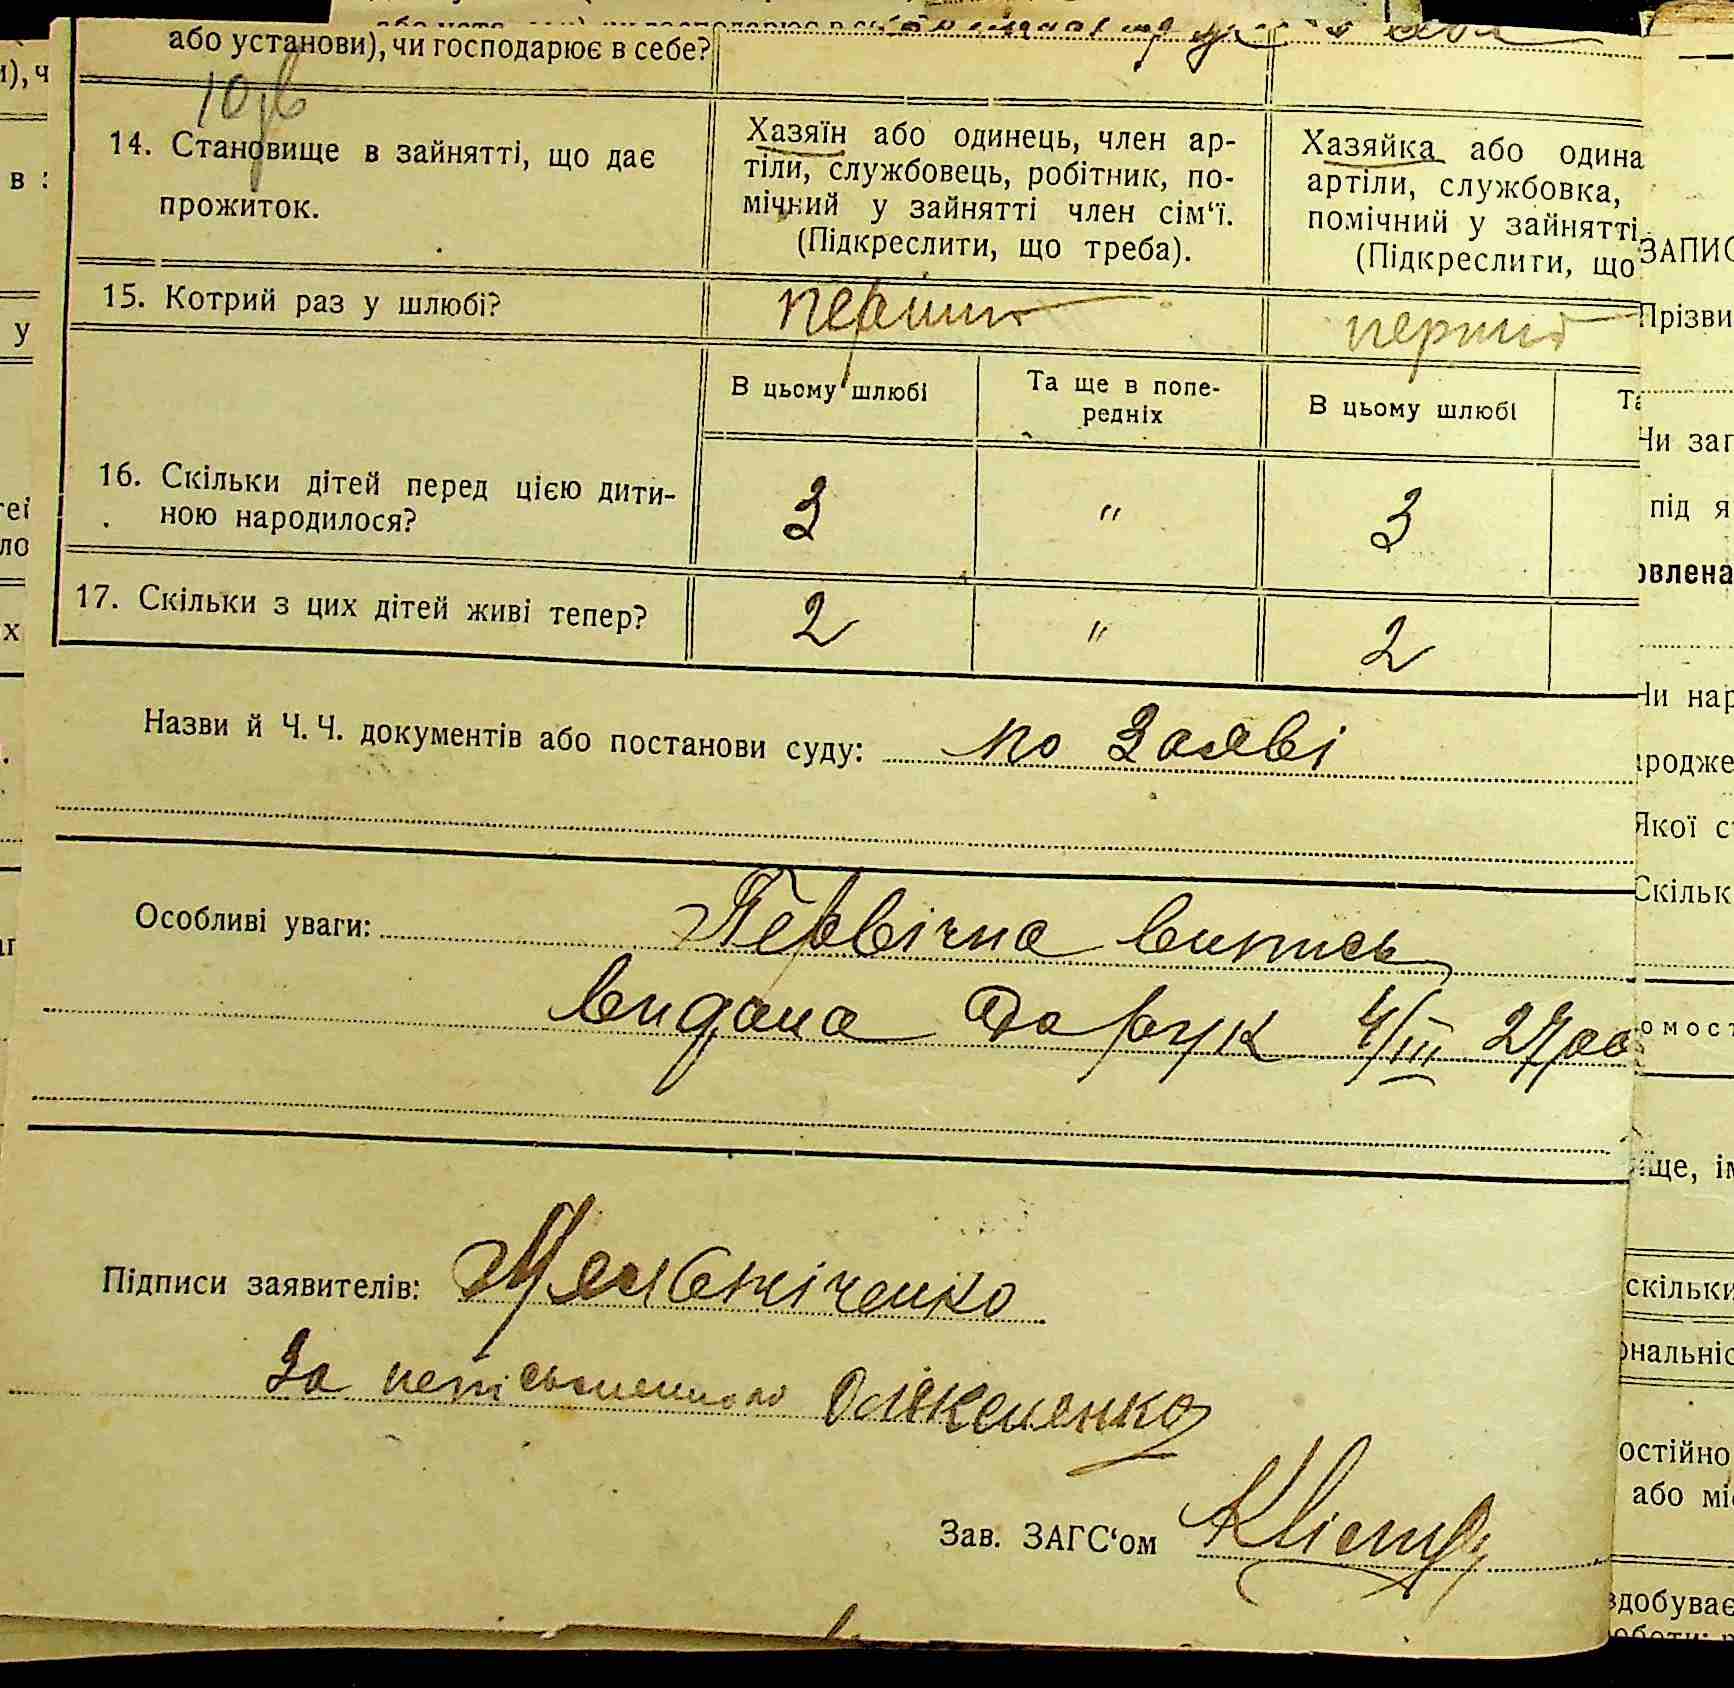 або установи), чи господарює в себе?
14. Становище в зайнятті, що дає прожиток.
Хазяїн або одинець, член ар-
тіли, службовець, робітник, по-
мічний у зайнятті член сім'ї.
(Підкреслити, що треба).
Хазяйка або одина
артіли, службовка,
помічний у зайнятті
(Підкреслити, що
15. Котрий раз у шлюбі?
перший
перший
В цьому шлюбі
Та ще в попе-
редніх
В цьому шлюбі
Та
16. Скільки дітей перед цією дити-
ною народилося?
3 " 3
17. Скільки з цих дітей живі тепер?
2 " 2
Назви й Ч. Ч. документів або постанови суду: по Заяві
Особливі уваги: Первічна випись
видана на рук 4/III 27
Підписи заявителів:
За неписьменного
Зав. ЗАГС'ом
ЗАПИС
Прізви
Чи заг
під я
овлена
Чи нар
ародже
Якої с
Скільк
омост
ище, ім
скільки
ональніс
остійно
або мі
здобуває